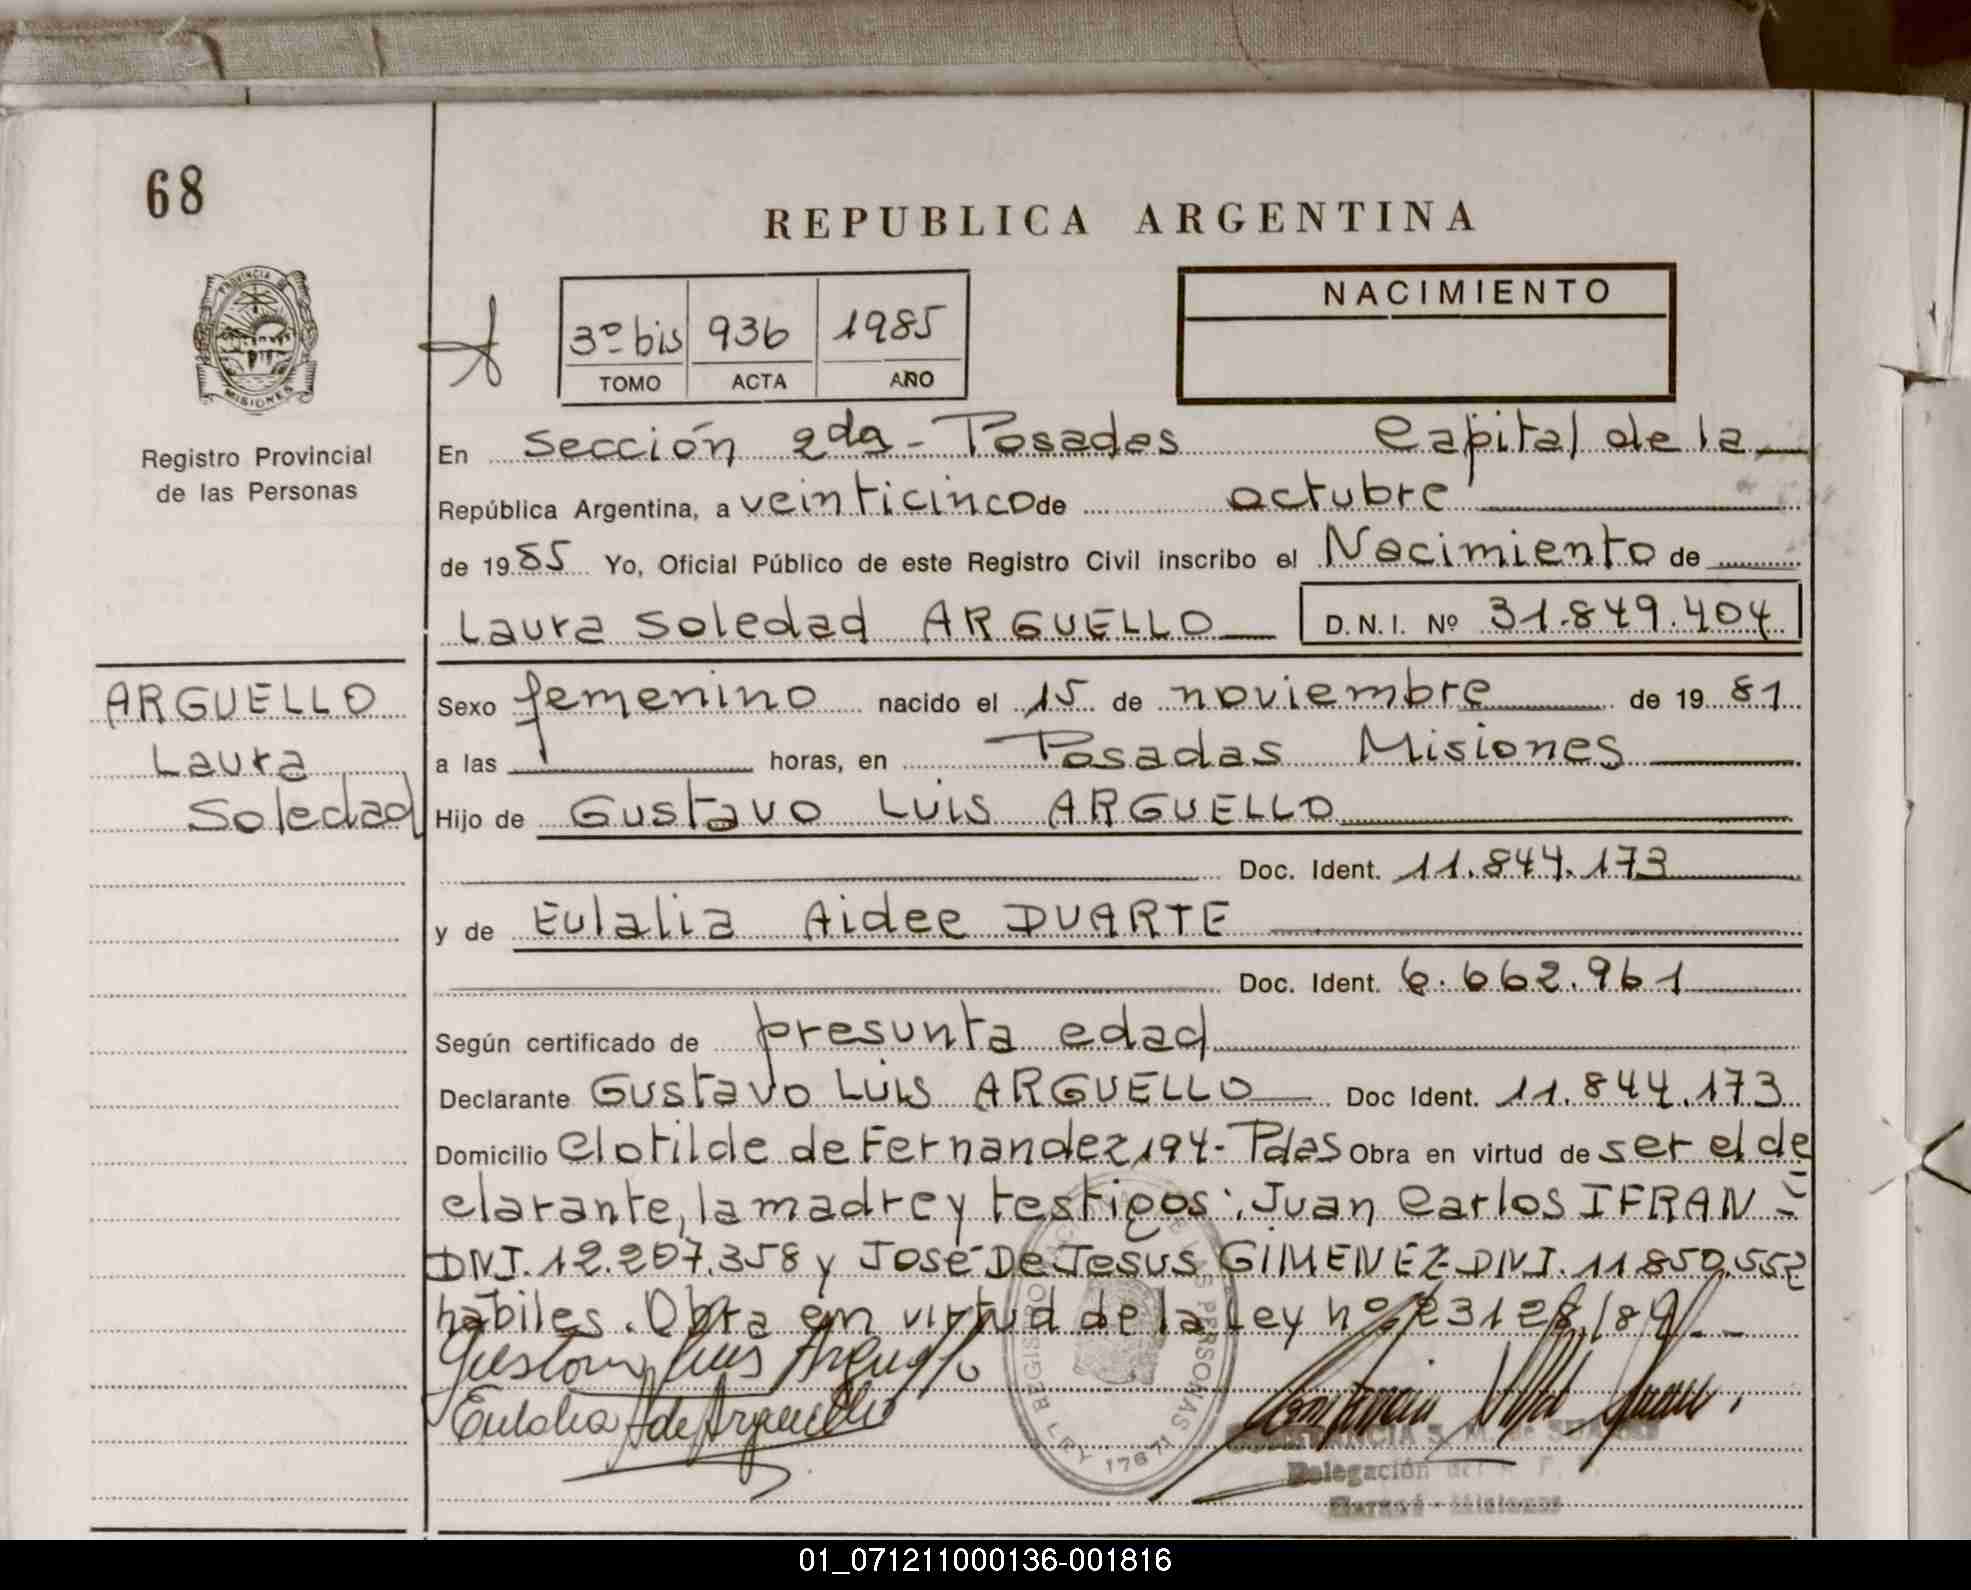 68
REPUBLICA ARGENTINA
PROVINCIA DE
MISIONES
Registro Provincial
de las Personas
3º bis 936 1985
TOMO ACTA AÑO
NACIMIENTO
En Sección 2da - Posadas Capital de la
República Argentina, a veinticinco de octubre
de 1985 Yo, Oficial Público de este Registro Civil inscribo el Nacimiento de
Laura Soledad ARGUELLO D.N.I. Nº 31.849.404
ARGUELLO
Laura
Soledad
Sexo femenino nacido el 15 de noviembre de 1981
a las horas, en Posadas Misiones
Hijo de Gustavo Luis ARGUELLO
Doc. Ident. 11.844.173
y de Eulalia Aidee DUARTE
Doc. Ident. 6.662.961
Según certificado de presunta edad
Declarante Gustavo Luis ARGUELLO Doc Ident. 11.844.173
Domicilio Clotilde de Fernandez 194 - Pdas Obra en virtud de ser el de
clarante, la madre y testigos: Juan Carlos IFRAN -
DNI. 12.207.358 y José De Jesus GIMENEZ - DNI. 11.850.552
hábiles. Obra en virtud de la Ley nº 23128/84 --
Gustavo Luis Arguello
Eulalia A de Arguello
REGISTRO NACIONAL DE LAS PERSONAS
LEY 17671
CONSTANCIA S. M. de
Delegación del
- Misiones
01_071211000136-001816